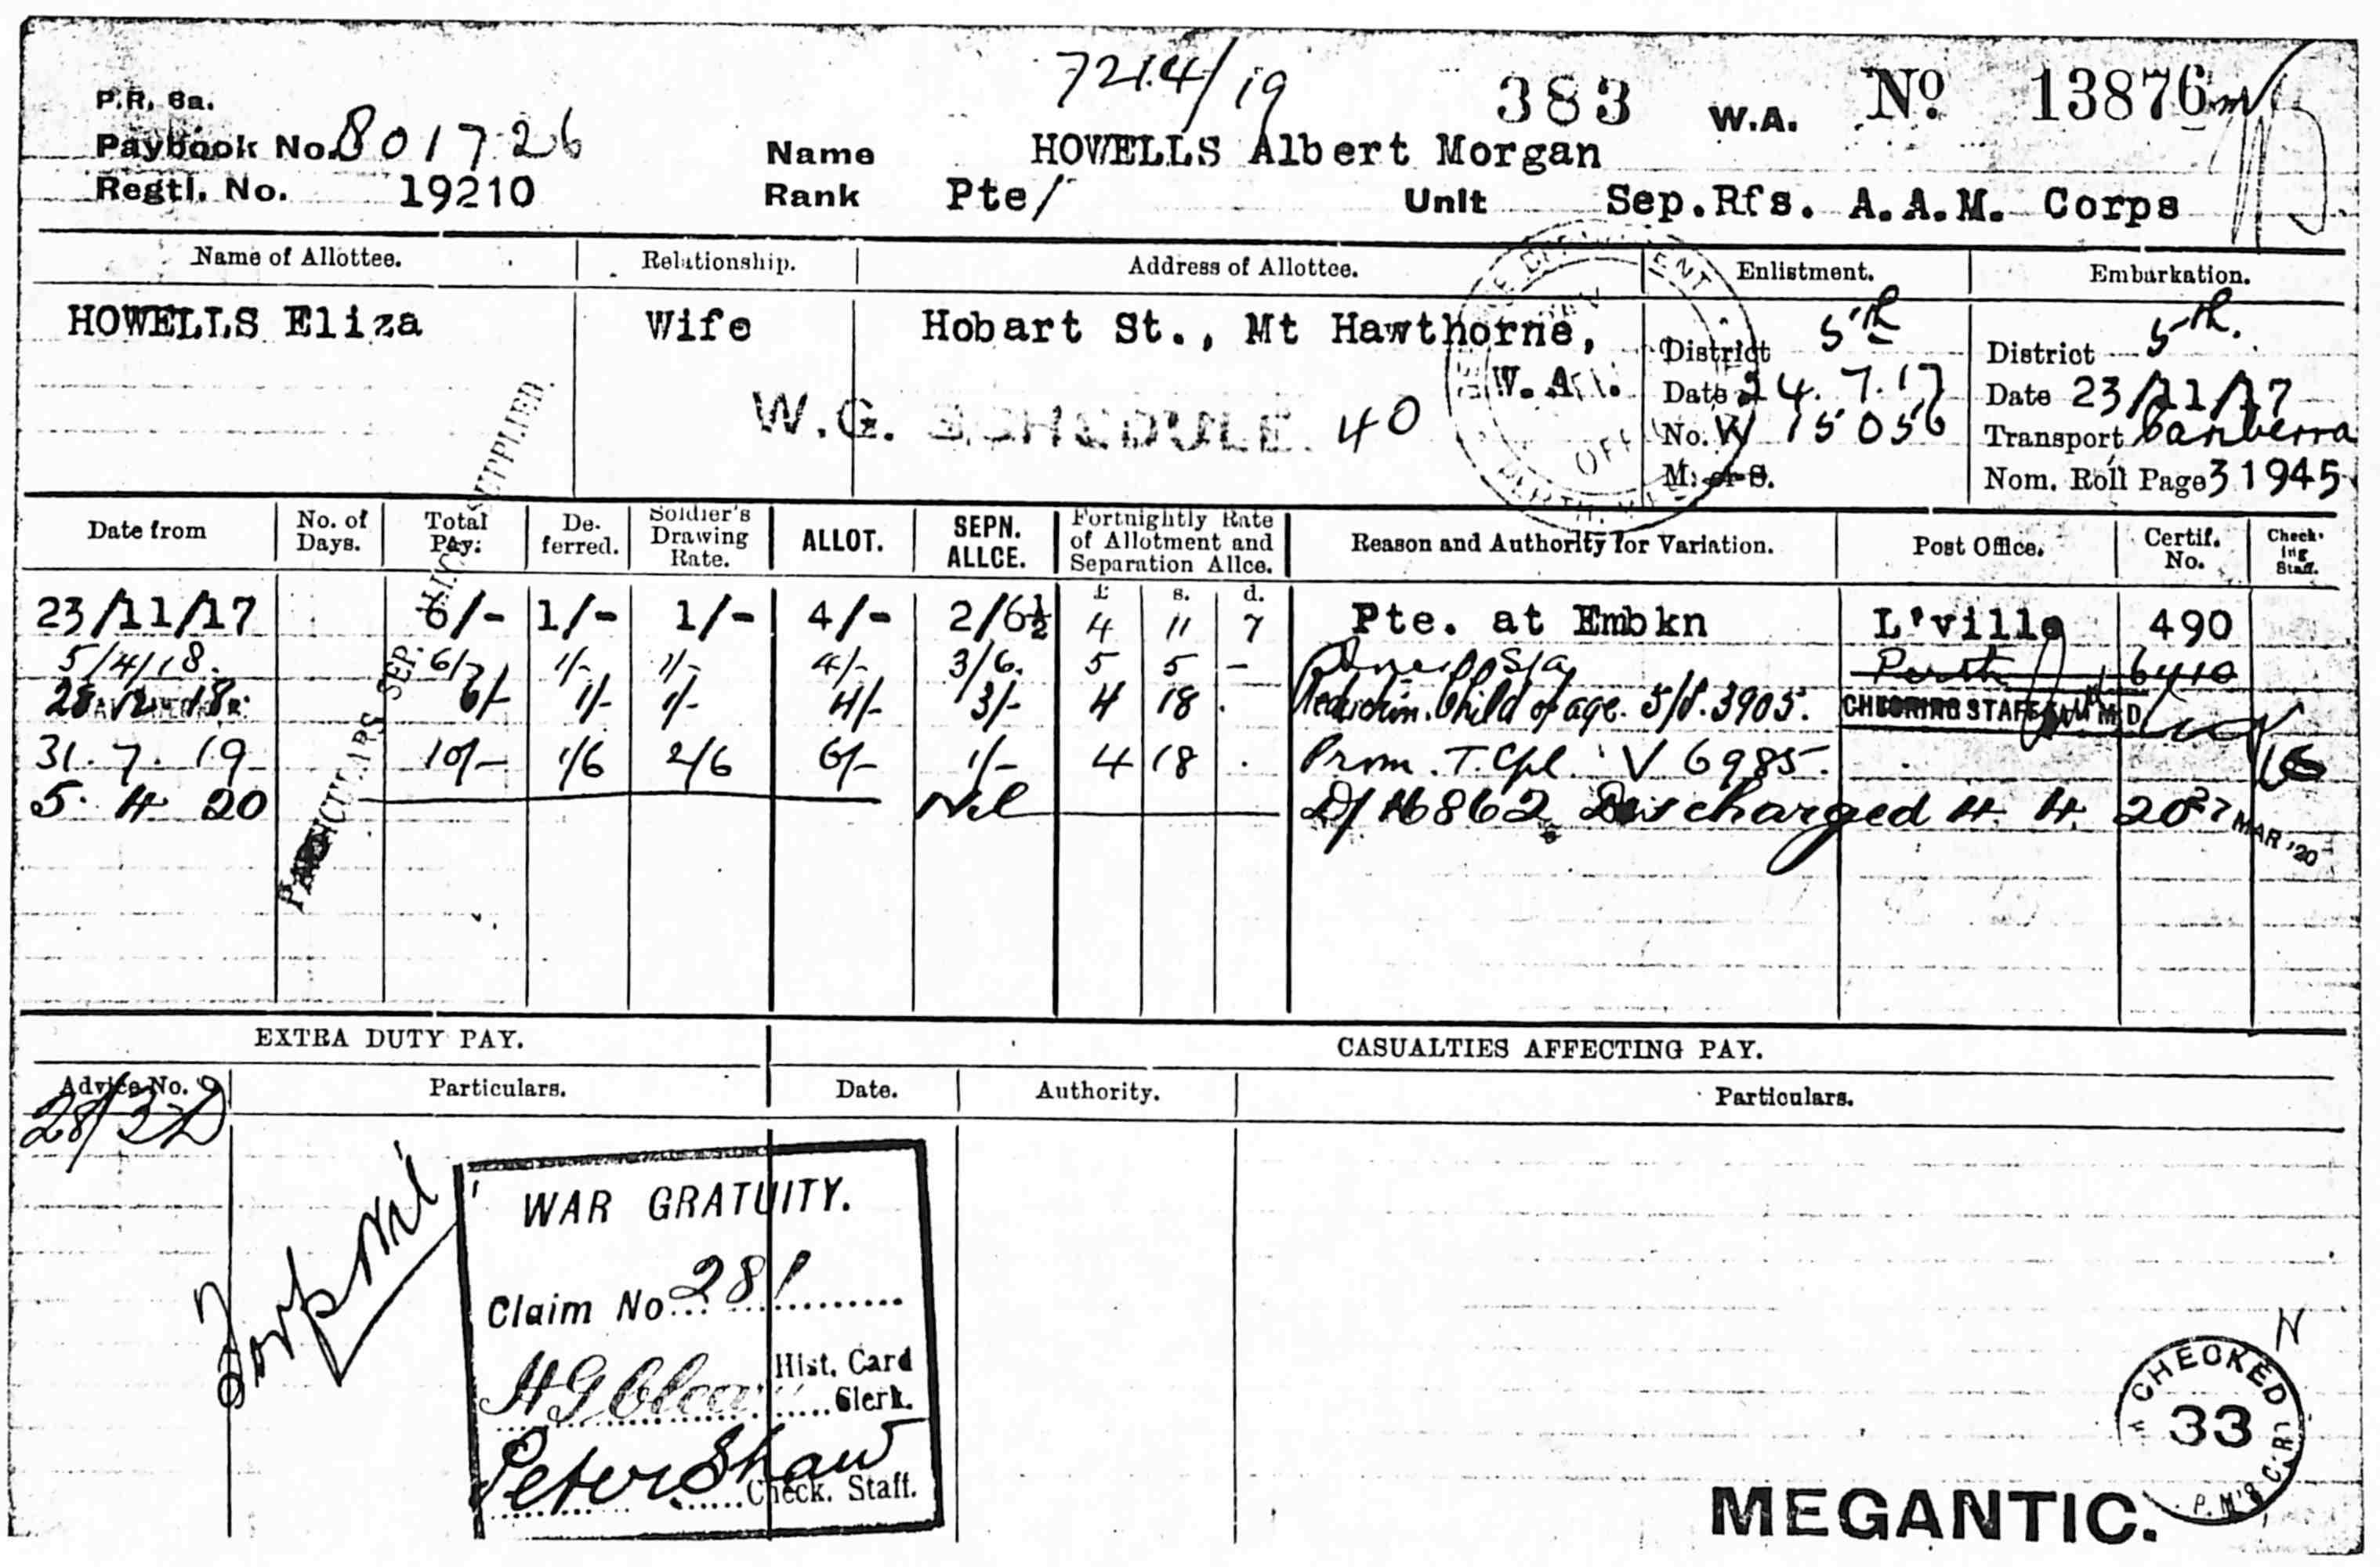 7214/19
P.R. 6a. 383 W.A. Nº 13876
Paybook No. 801726 Name HOWELLS Albert Morgan
Regtl. No. 19210 Rank Pte/ Unit Sep.Rfs. A.A.M. Corps
Name of Allottee. Relationship. Address of Allottee. Enlistment. Embarkation.
HOWELLS Eliza Wife Hobart St., Mt Hawthorne, District 5th District 5th.
W.A. Date 24.7.17 Date 23/11/17
W.G. SCHEDULE 40 No. W 15056 Transport Canberra
M: or S. Nom. Roll Page 31945
Date from No. of Days. Total Pay: De-ferred. Soldier's Drawing Rate. ALLOT. SEPN. ALLCE. Fortnightly Rate of Allotment and Separation Allce. Reason and Authority for Variation. Post Office. Certif. No. Check-ing Staff.
£ s. d.
23/11/17 6/- 1/- 1/- 4/- 2/6½ 4 11 7 Pte. at Embkn L'ville 490
5/4/18. 6/- 1/- 1/- 4/- 3/6. 5 5 - S/a Perth 6410
28 12 18 6/- 1/- 1/- 4/- 3/- 4 18 . Reduction. Child of age. S/A. 3905. CHECKING STAFF M D
31. 7. 19 10/- 1/6 2/6 6/- 1/- 4 18 . Prom. T. Cpl. V 6985.
5. 4 20 Nil D/16862 Discharged 4. 4. 20 27 MAR '20
PARTICULARS SEP. SUPPLIED.
EXTRA DUTY PAY. CASUALTIES AFFECTING PAY.
Advice No. Particulars. Date. Authority. Particulars.
28/3
Nil
WAR GRATUITY.
Claim No... 281
Hist. Card
Clerk.
Peter Shaw
Check. Staff.
CHECKED
33
P.M's
MEGANTIC.